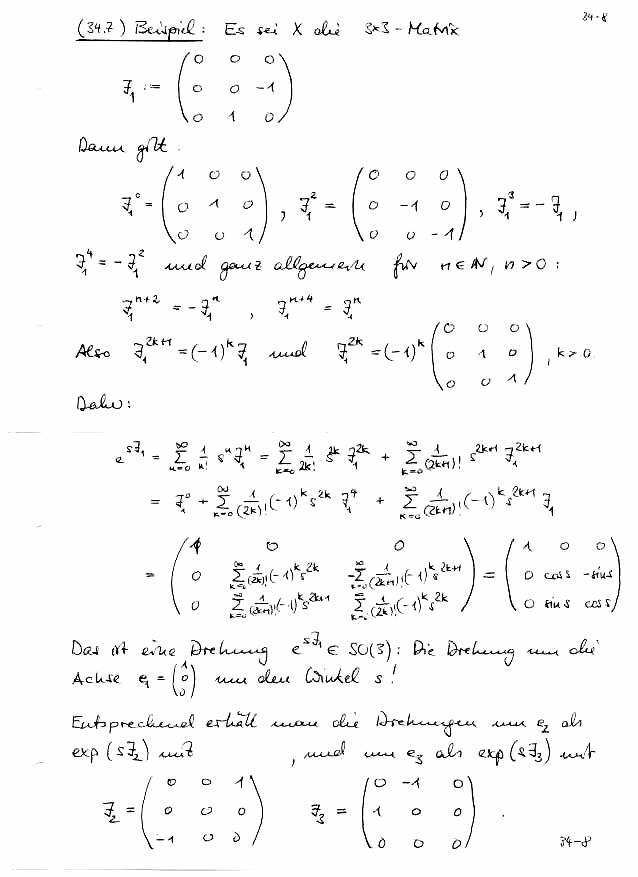 34-8
(34.7) Beispiel: Es sei X die 3x3-Matrix
J₁ := ( 0 0 0 ; 0 0 -1 ; 0 1 0 )
Dann gilt.
J₁⁰ = ( 1 0 0 ; 0 1 0 ; 0 0 1 ) , J₁² = ( 0 0 0 ; 0 -1 0 ; 0 0 -1 ) , J₁³ = -J₁ ,
J₁⁴ = -J₁² und ganz allgemein für n ∈ ℕ, n > 0 :
J₁ⁿ⁺² = -J₁ⁿ , J₁ⁿ⁺⁴ = J₁ⁿ
Also J₁²ᵏ⁺¹ = (-1)ᵏ J₁ und J₁²ᵏ = (-1)ᵏ ( 0 0 0 ; 0 1 0 ; 0 0 1 ) , k > 0.
Daher:
e^{sJ₁} = Σ_{n=0}^∞ 1/n! sⁿ J₁ⁿ = Σ_{k=0}^∞ 1/2k! s²ᵏ J₁²ᵏ + Σ_{k=0}^∞ 1/(2k+1)! s²ᵏ⁺¹ J₁²ᵏ⁺¹
= J₁⁰ + Σ_{k=0}^∞ 1/(2k)! (-1)ᵏ s²ᵏ J₁⁴ + Σ_{k=0}^∞ 1/(2k+1)! (-1)ᵏ s²ᵏ⁺¹ J₁
= ( 1 0 0 ; 0 Σ_{k=0}^∞ 1/(2k)! (-1)ᵏ s²ᵏ -Σ_{k=0}^∞ 1/(2k+1)! (-1)ᵏ s²ᵏ⁺¹ ; 0 Σ_{k=0}^∞ 1/(2k+1)! (-1)ᵏ s²ᵏ⁺¹ Σ_{k=0}^∞ 1/(2k)! (-1)ᵏ s²ᵏ ) = ( 1 0 0 ; 0 cos s -sin s ; 0 sin s cos s )
Das ist eine Drehung e^{sJ₁} ∈ SO(3): Die Drehung um die
Achse e₁ = ( 1 ; 0 ; 0 ) um den Winkel s!
Entsprechend erhält man die Drehungen um e₂ als
exp(sJ₂) mit , und um e₃ als exp(sJ₃) mit
J₂ = ( 0 0 1 ; 0 0 0 ; -1 0 0 ) J₃ = ( 0 -1 0 ; 1 0 0 ; 0 0 0 ) .
34-8